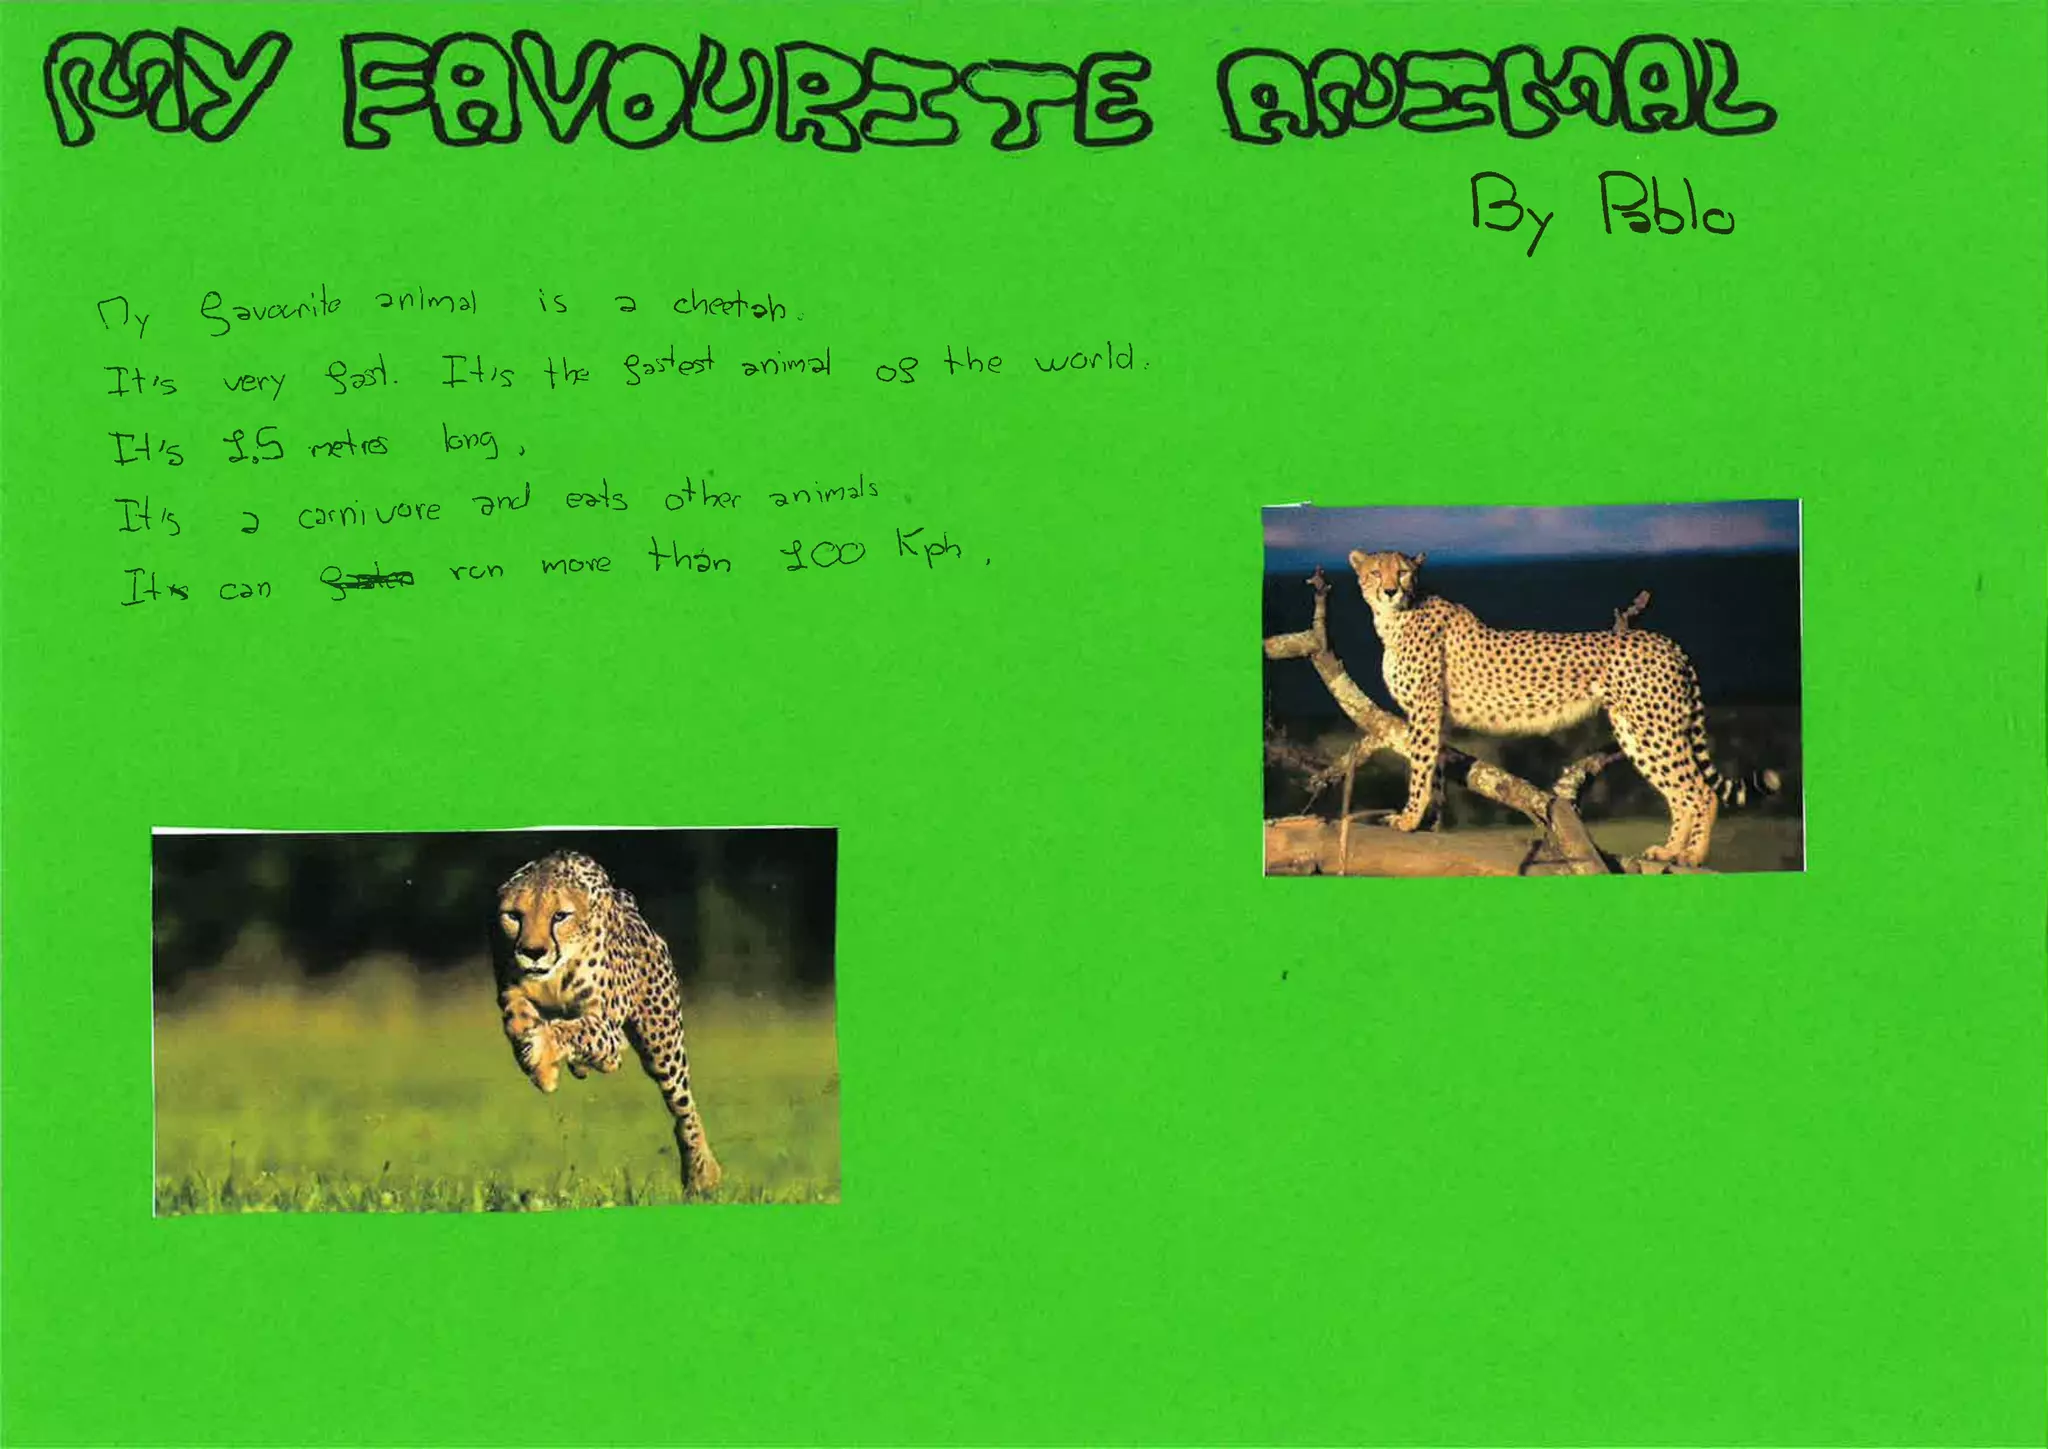 MY FAVOURITE ANIMAL
By Pablo
My favourite animal is a cheetah.
It's very fast. It's the fastest animal of the world.
It's 1,5 metres long,
It's a carnivore and eats other animals.
It can run more than 100 Kph,